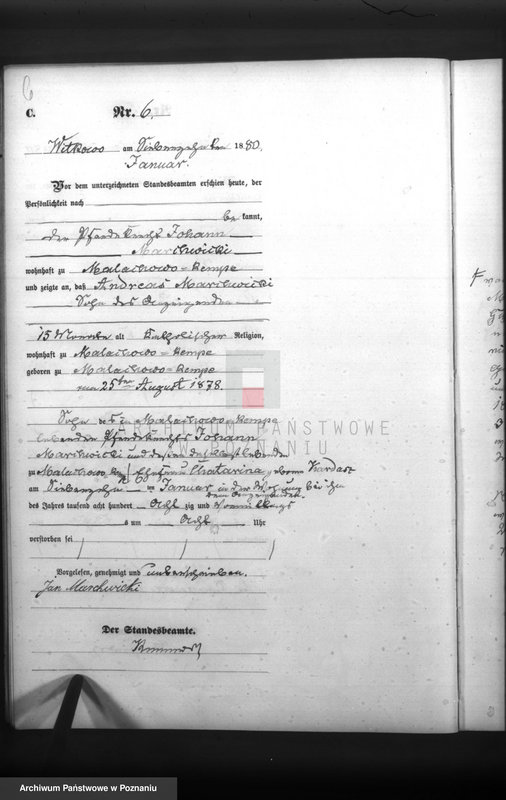 6
C.
Nr. 6.
Witkowo am Siebenzehnten 1880.
Januar.
Vor dem unterzeichneten Standesbeamten erschien heute, der
Persönlichkeit nach
be kannt,
der Pferdeknecht Johann
Marchwicki
wohnhaft zu Malachowo-Kempe
und zeigte an, daß Andreas Marchwicki
Sohn des Anzeigenden
15 Monate alt Katholischer Religion,
wohnhaft zu Malachowo-Kempe
geboren zu Malachowo-Kempe
am 25ten August 1878.
Sohn des in Malachowo-Kempe
lebenden Pferdeknechts Johann
Marchwicki und dessen daselbst lebender
zu Malachowo Kempe Ehefrau Chatarina geborne
am Siebenzehnten Januar in der Wohnung
dem Anzeigenden
des Jahres tausend acht hundert Acht zig und Vormittags
um Acht Uhr
verstorben sei
Vorgelesen, genehmigt und unterschrieben.
Jan Marchwicki
Der Standesbeamte.
ARCHIWUM PAŃSTWOWE
W POZNANIU
Archiwum Państwowe w Poznaniu